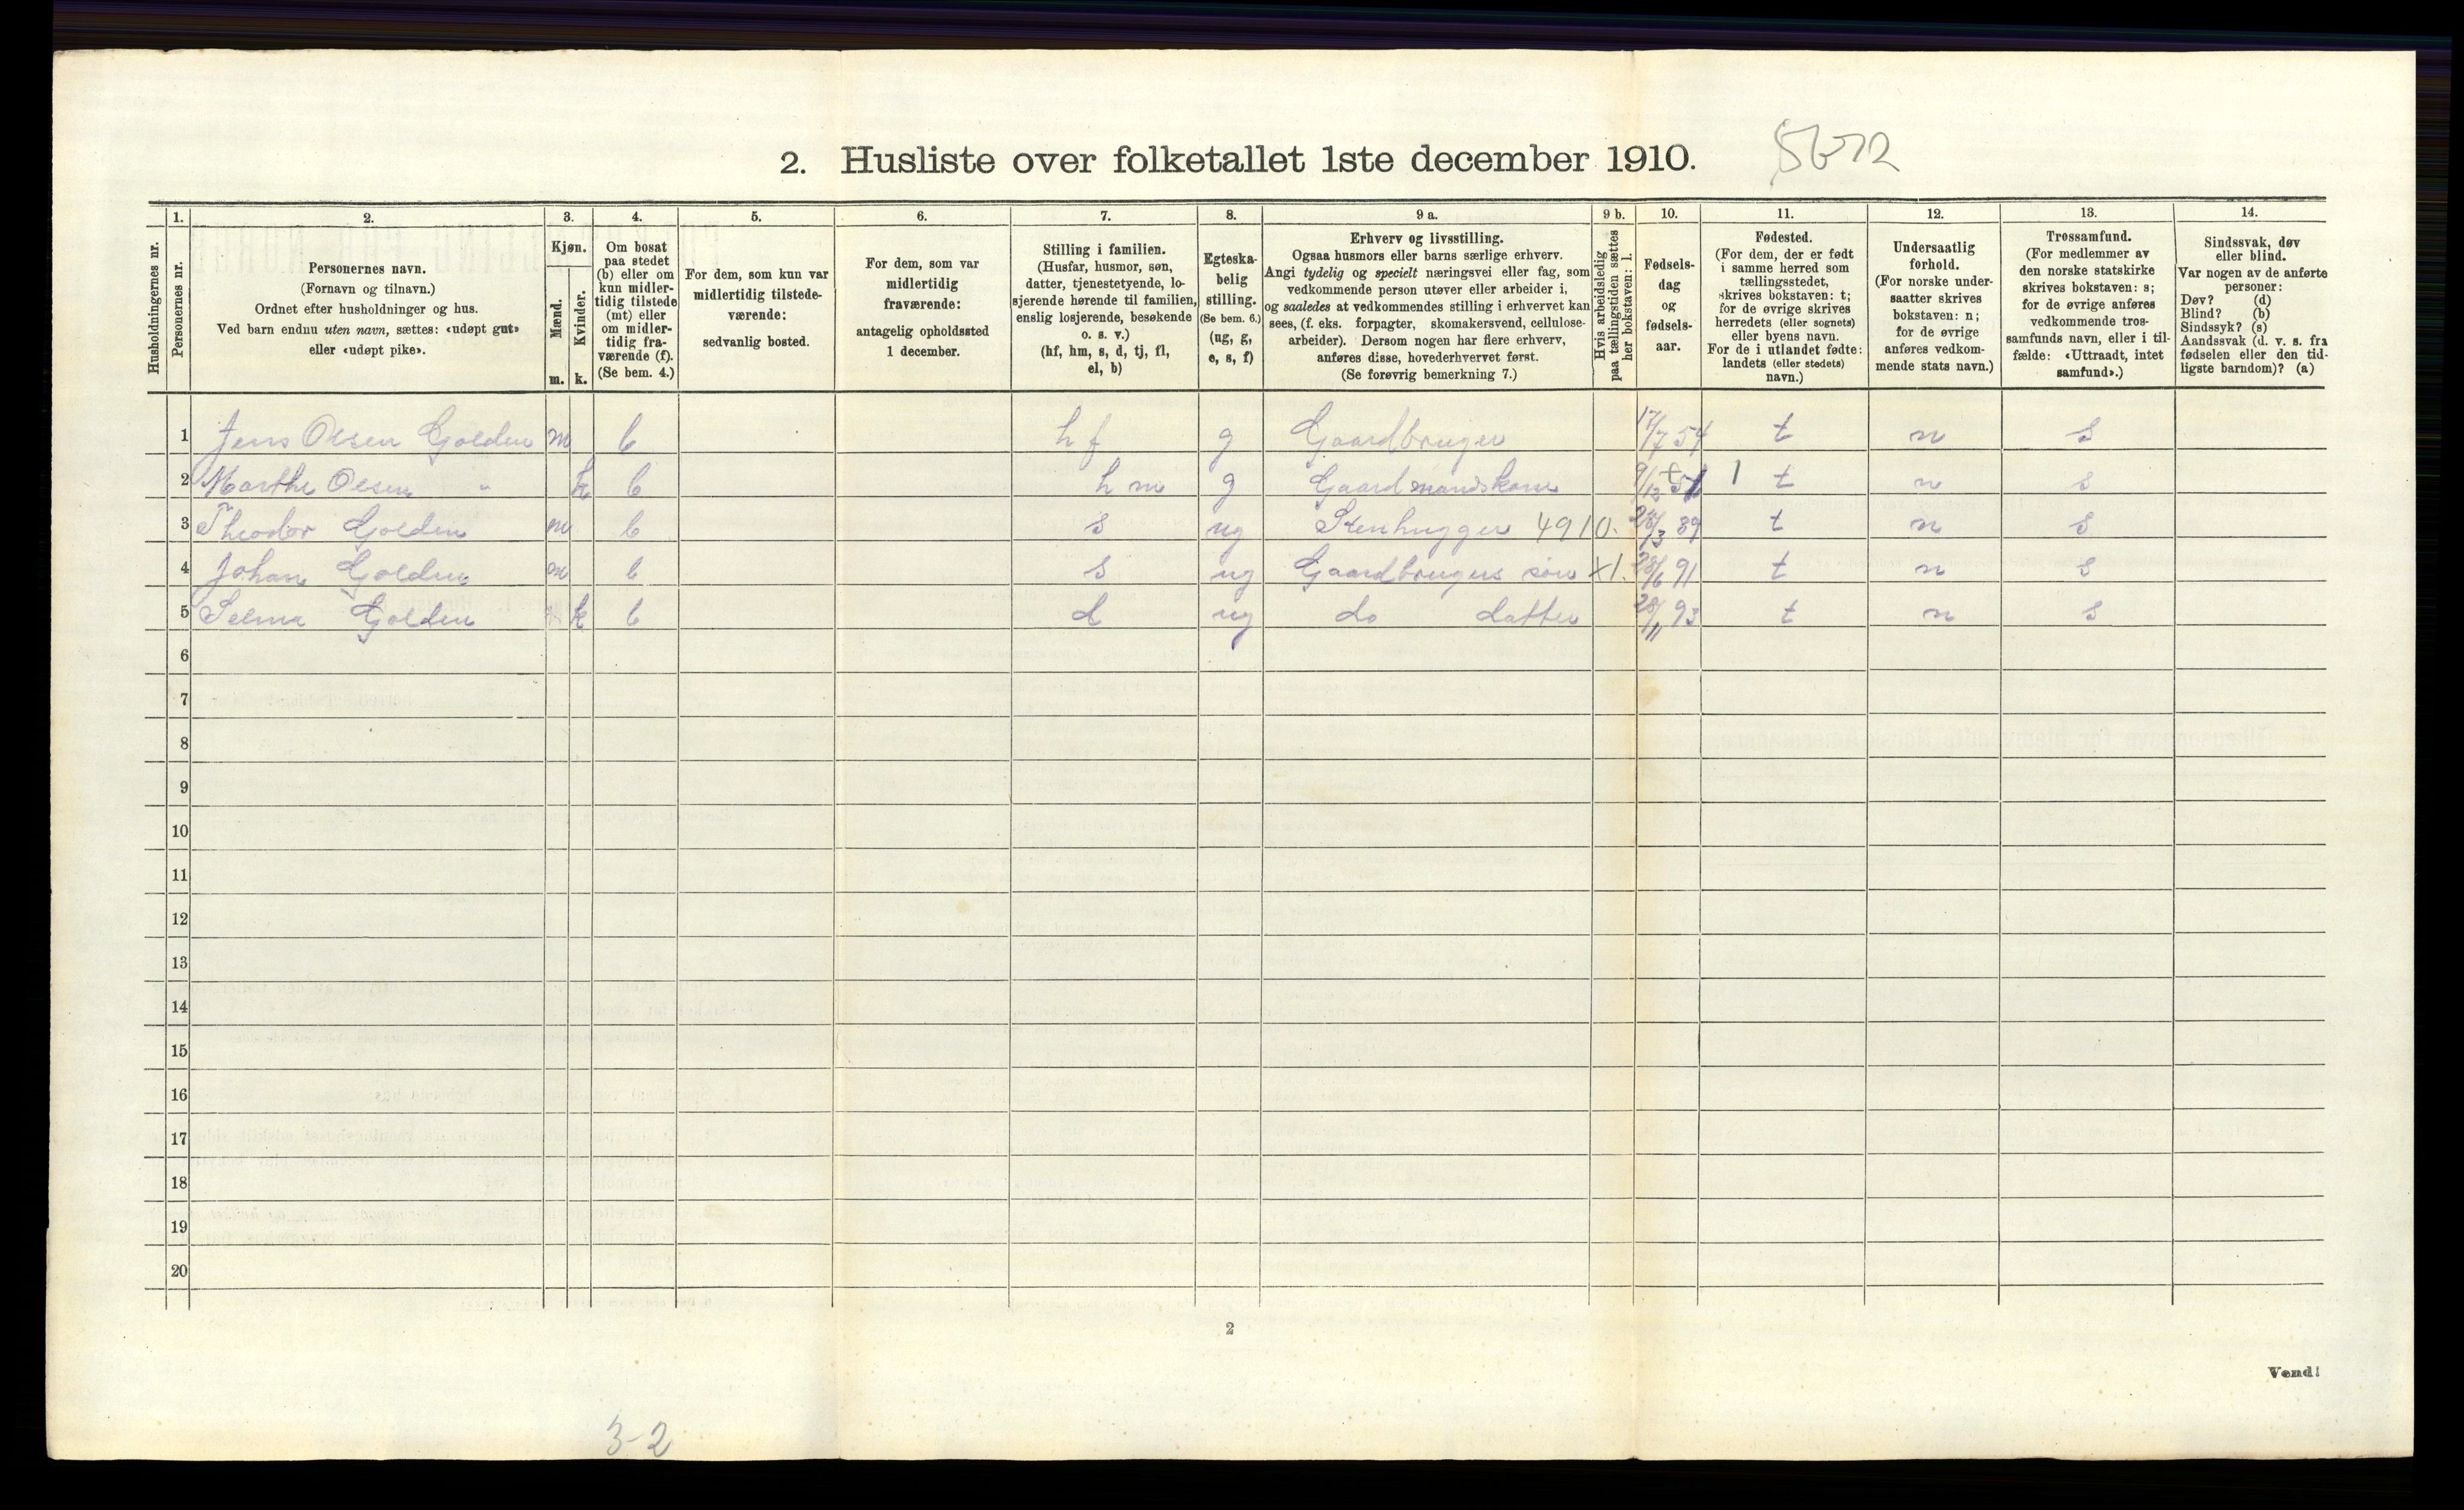 2. Husliste over folketallet 1ste december 1910.
Husholdningernes nr.
1.
Personernes nr.
2.
Personernes navn.
(Fornavn og tilnavn.)
Ordnet efter husholdninger og hus.
Ved barn endnu uten navn, sættes: «udøpt gut»
eller «udøpt pike».
3.
Kjøn.
Mænd.
Kvinder.
m. k.
4.
Om bosat
paa stedet
(b) eller om
kun midler-
tidig tilstede
(mt) eller
om midler-
tidig fra-
værende (f).
(Se bem. 4.)
5.
For dem, som kun var
midlertidig tilstede-
værende:
sedvanlig bosted.
6.
For dem, som var
midlertidig
fraværende:
antagelig opholdssted
1 december.
7.
Stilling i familien.
(Husfar, husmor, søn,
datter, tjenestetyende, lo-
sjerende hørende til familien,
enslig losjerende, besøkende
o. s. v.)
(hf, hm, s, d, tj, fl,
el, b)
8.
Egteska-
belig
stilling.
(Se bem. 6.)
(ug, g,
e, s, f)
9 a.
Erhverv og livsstilling.
Ogsaa husmors eller barns særlige erhverv.
Angi tydelig og specielt næringsvei eller fag, som
vedkommende person utøver eller arbeider i,
og saaledes at vedkommendes stilling i erhvervet kan
sees, (f. eks. forpagter, skomakersvend, cellulose-
arbeider). Dersom nogen har flere erhverv,
anføres disse, hovederhvervet først.
(Se forøvrig bemerkning 7.)
9 b.
Hvis arbeidsledig
paa tællingstiden sættes
her bokstaven: l.
10.
Fødsels-
dag
og
fødsels-
aar.
11.
Fødested.
(For dem, der er født
i samme herred som
tællingsstedet,
skrives bokstaven: t;
for de øvrige skrives
herredets (eller sognets)
eller byens navn.
For de i utlandet fødte:
landets (eller stedets)
navn.)
12.
Undersaatlig
forhold.
(For norske under-
saatter skrives
bokstaven: n;
for de øvrige
anføres vedkom-
mende stats navn.)
13.
Trossamfund.
(For medlemmer av
den norske statskirke
skrives bokstaven: s;
for de øvrige anføres
vedkommende tros-
samfunds navn, eller i til-
fælde: «Uttraadt, intet
samfund».)
14.
Sindssvak, døv
eller blind.
Var nogen av de anførte
personer:
Døv? (d)
Blind? (b)
Sindssyk? (s)
Aandssvak (d. v. s. fra
fødselen eller den tid-
ligste barndom)? (a)
1 Jens Olsen Golden m b hf g Gaardbruger 17/7 54 t n s
2 Marthe Olsen " k b hm g Gaardmandskone 9/12 51 1 t n s
3 Theodor Golden m b s ug Stenhugger 4910. 24/3 89 t n s
4 Johan Golden m b s ug Gaardbrugers søn X1. 28/6 91 t n s
5 Selma Golden k b d ug do datter 28/11 93 t n s
6
7
8
9
10
11
12
13
14
15
16
17
18
19
20
2
Vend!
3-2